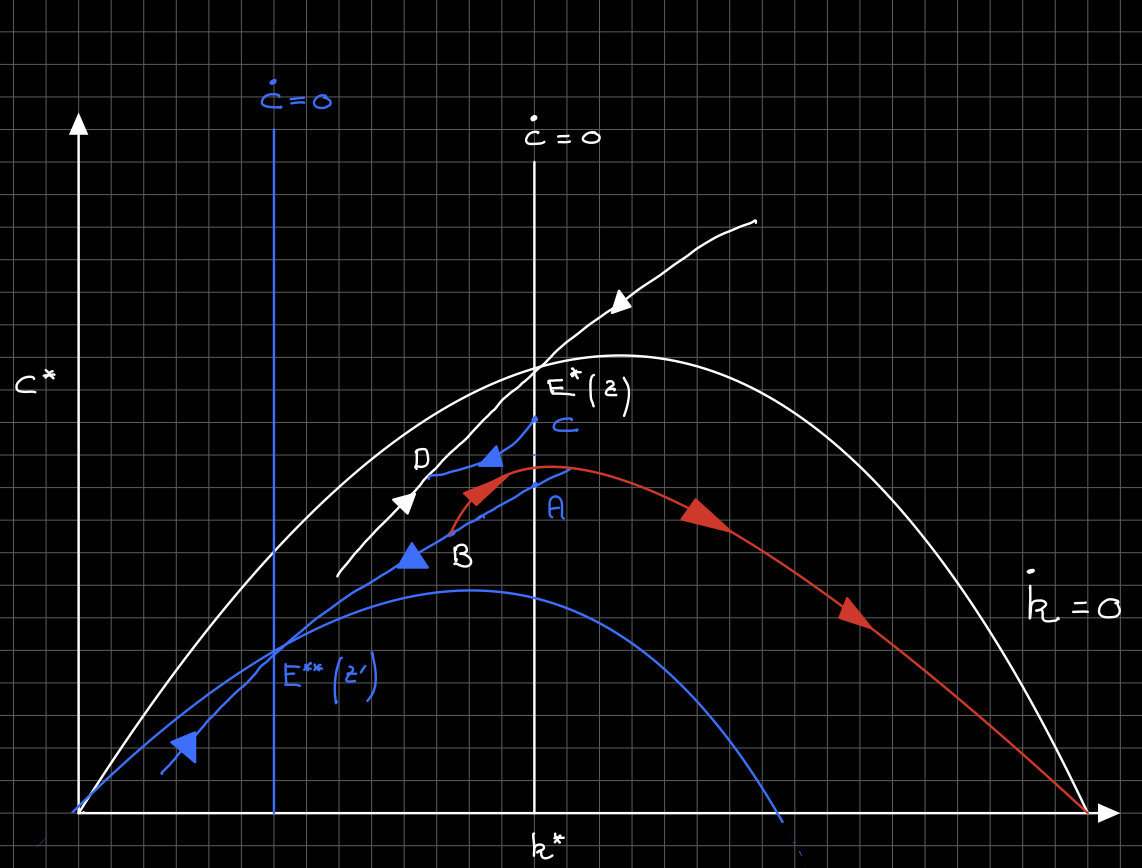 ċ = 0
ċ = 0
C*
E*(z)
C
D
A
B
k̇ = 0
E**(z')
k*